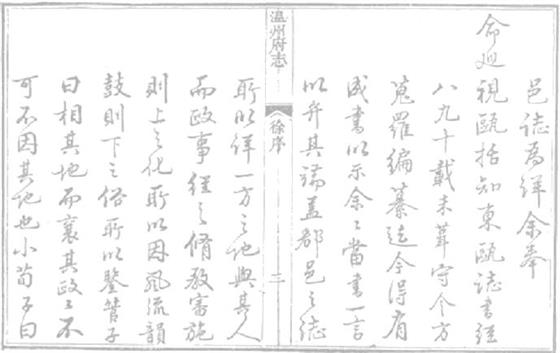 邑誌為詳余奉
命廵視甌括知東甌誌書經
八九十載未葺守令方
蒐羅編纂迄今得有
成書以示余〻當書一言
以弁其端蓋郡邑之誌
溫州府志
徐序
三
所以詳一方之地與其人
而政事經之脩教審施
則上之化所以因風流韻
鼓則下之俗所以鑒管子
曰相其地而襄其政〻不
可不因其地也小荀子曰